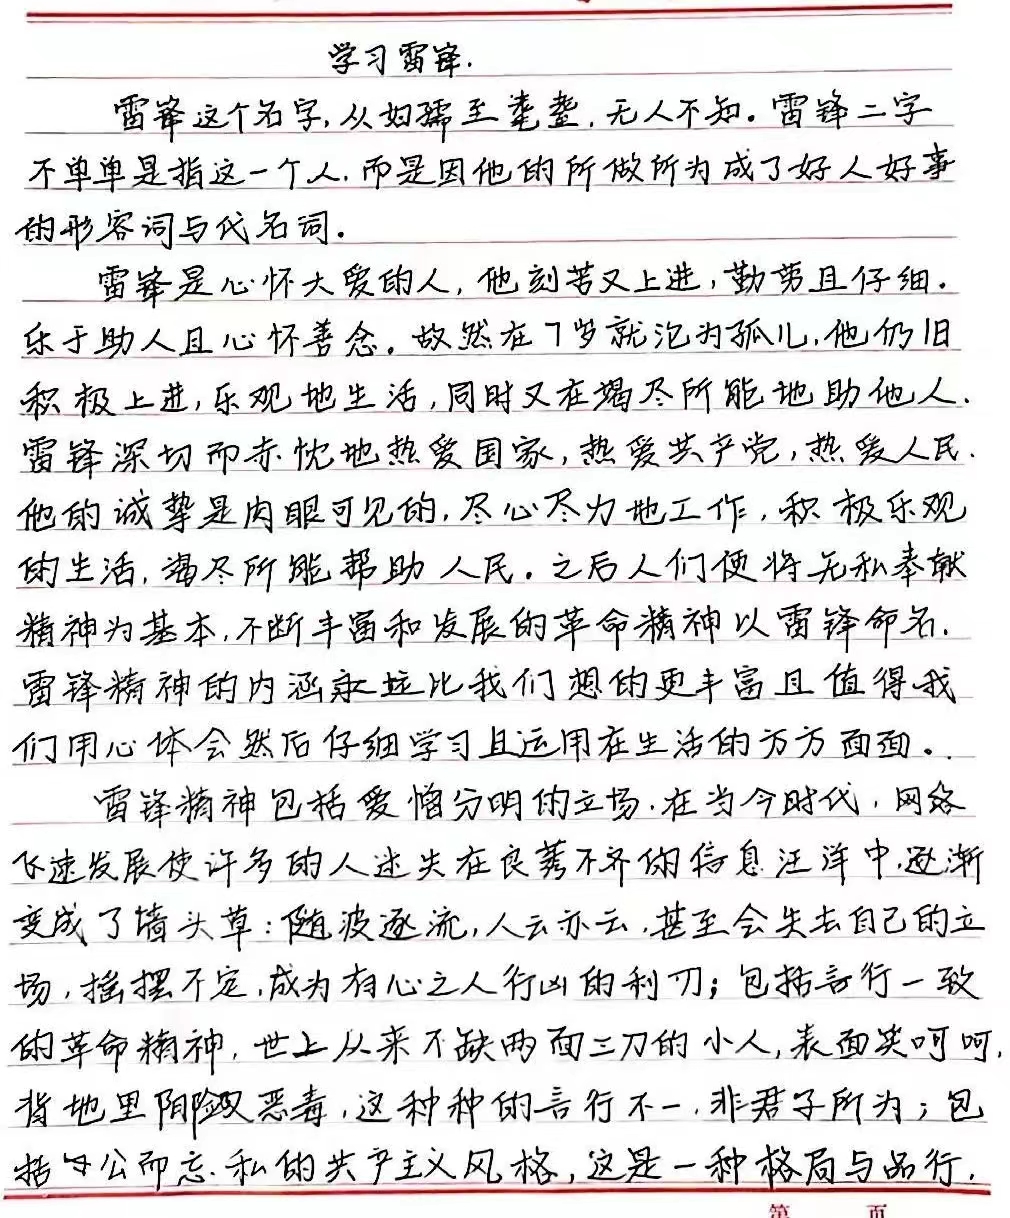 学习雷锋.
雷锋这个名字,从妇孺至耄耋,无人不知。雷锋二字
不单单是指这一个人,而是因他的所做所为成了好人好事
的形容词与代名词。
雷锋是心怀大爱的人,他刻苦又上进,勤劳且仔细.
乐于助人且心怀善念。故然在7岁就沦为孤儿,他仍旧
积极上进,乐观地生活,同时又在竭尽所能地助他人.
雷锋深切而赤忱地热爱国家,热爱共产党,热爱人民.
他的诚挚是肉眼可见的,尽心尽力地工作,积极乐观
的生活,竭尽所能帮助人民。之后人们便将无私奉献
精神为基本,不断丰富和发展的革命精神以雷锋命名.
雷锋精神的内涵永远比我们想的更丰富且值得我
们用心体会然后仔细学习且运用在生活的方方面面。
雷锋精神包括爱憎分明的立场.在当今时代,网络
飞速发展使许多的人迷失在良莠不齐的信息汪洋中,逐渐
变成了墙头草:随波逐流,人云亦云,甚至会失去自己的立
场,摇摆不定,成为有心之人行凶的利刃;包括言行一致
的革命精神,世上从来不缺两面三刀的小人,表面笑呵呵,
背地里阴险又恶毒,这种种的言行不一,非君子所为;包
括 公而忘私的共产主义风格,这是一种格局与品行,
第 页